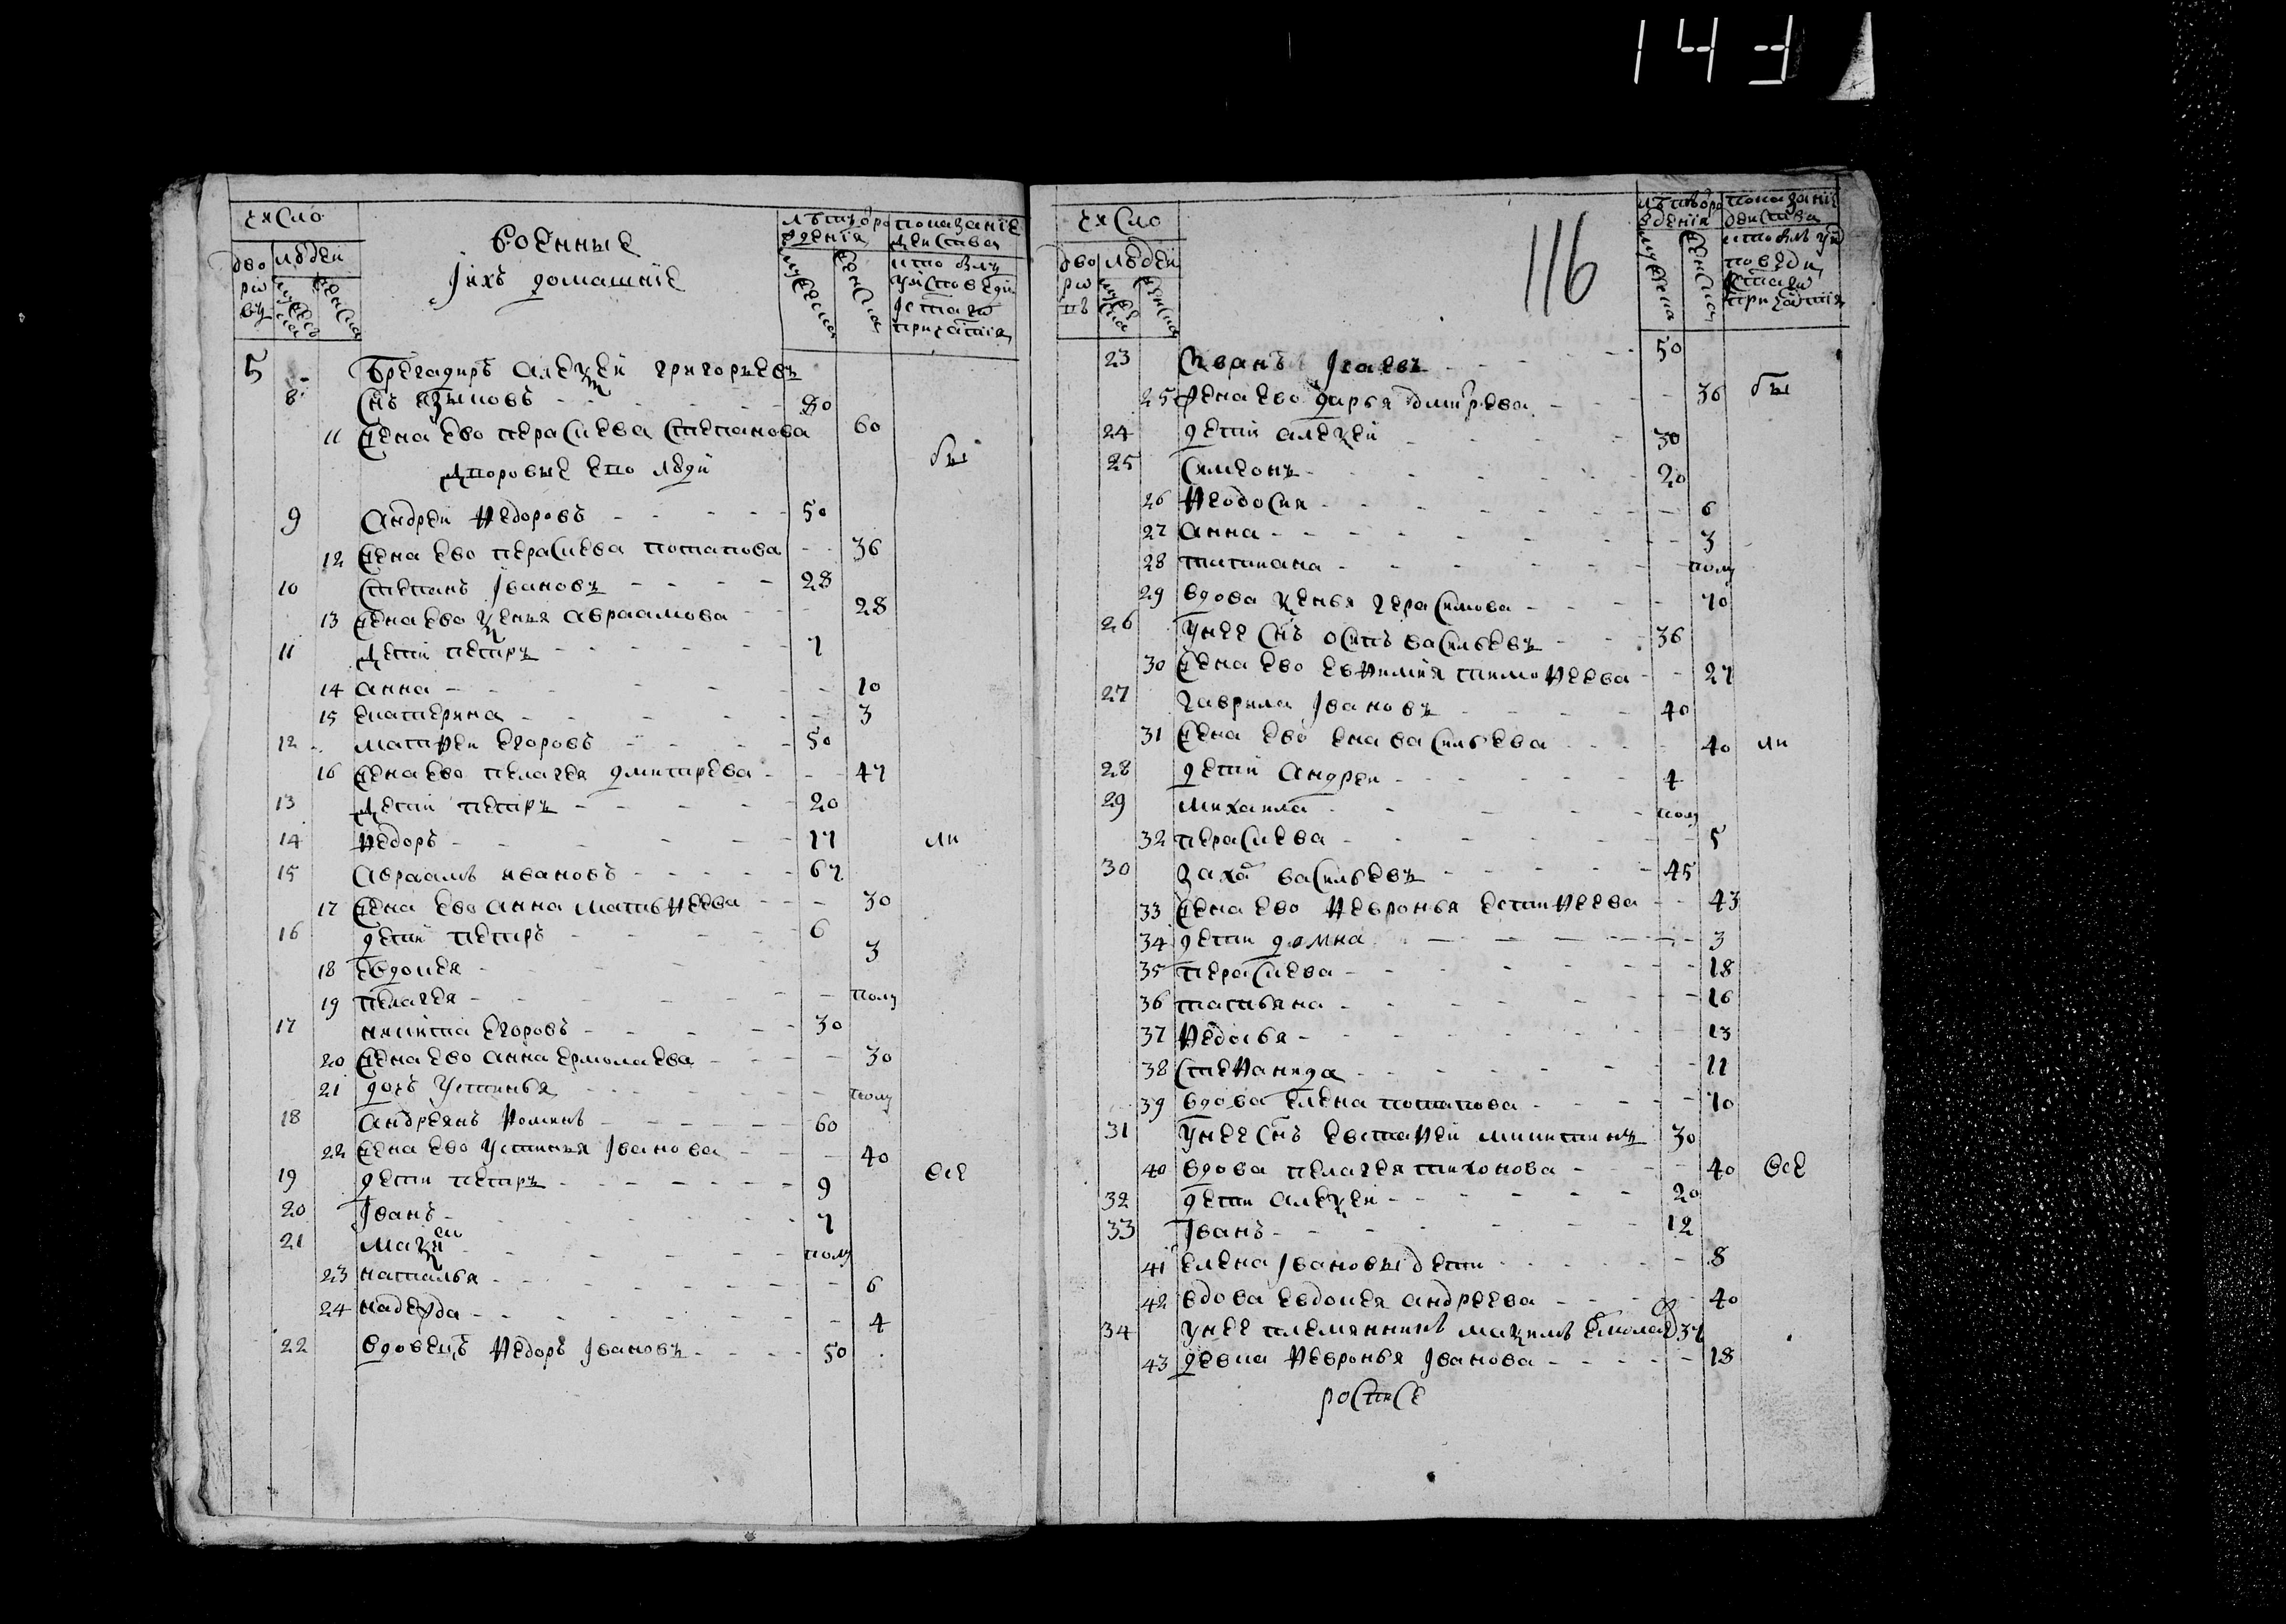 143
число
дворовъ
людей
мужеска
женска
Военные
Ихъ домашние
лѣтъ от рождения
мужеска
женска
показание действа
кто былъ у исповеди и святаго причастия
5 8 Брегадиръ Алексеи Григорьевъ
снъ 80
11 жена ево Пераскева Степанова 60
Дворовые ево люди
бы
9 Андреи Ѳедоровъ 50
12 жена ево Пераскева Потапова 36
10 Степанъ Ивановъ 28
13 жена ево Ксенья Авраамова 28
11 Дети Петръ 7
14 Анна 10
15 Екатерина 3
12 Матѳеи Егоровъ 50
16 жена ево Пелагея Дмитрева 47
13 Дети Петръ 20
14 Ѳедоръ 17
ли
15 Авраамъ Ивановъ 67
17 жена ево Анна Матвѳеева 30
16 дети Петръ 6
18 Евдокея 3
19 Пелагея полу
17 Никита Егоровъ 30
20 жена ево Анна Ермолаева 30
21 дочь Устинья полу
18 Андреянъ Ѳоминъ 60
22 жена ево Устинья Иванова 40
19 дети Петръ 9
все
20 Иванъ 7
21 полу
23 Наталья 6
24 Надежда 4
22 вдовецъ Ѳедоръ Ивановъ 50
116
число
дворовъ
людей
мужеска
женска
лѣтъ от рождения
мужеска
женска
показание действа
кто былъ у исповеди и святаго причастия
23 Иванъ Исаевъ 50
25 жена ево Дарья Дмитрева 36 бы
24 дети Алексеи 30
25 Симеонъ 20
26 Ѳеодосия 6
27 Анна 3
28 Татиана полу
29 вдова Ксенья Герасимова 70
26 у нее снъ Осипъ Васильевъ 36
30 жена ево Евѳимия Тимоѳеева 27
27 Гаврила Ивановъ 40
31 жена ево Васильева 40 ли
28 дети Андреи 4
29 Михаила полу
32 Пераскева 5
30 Заха Васильевъ 45
33 жена ево Ѳевронья Естиѳеева 43
34 дети Домна 3
35 Пераскева 18
36 Татьяна 16
37 Ѳедосья 13
38 Стеѳанида 11
39 вдова Елена Потапова 70
31 у нее снъ Евстаѳеи Микитинъ 30
40 вдова Пелагея Тихонова 40 все
32 дети Алексеи 20
33 Иванъ 12
41 Елена Ивановы дети 8
42 вдова Евдокея Андреева 40
34 у нее племянникъ Максимъ 37
43 девка Ѳевронья Иванова 18